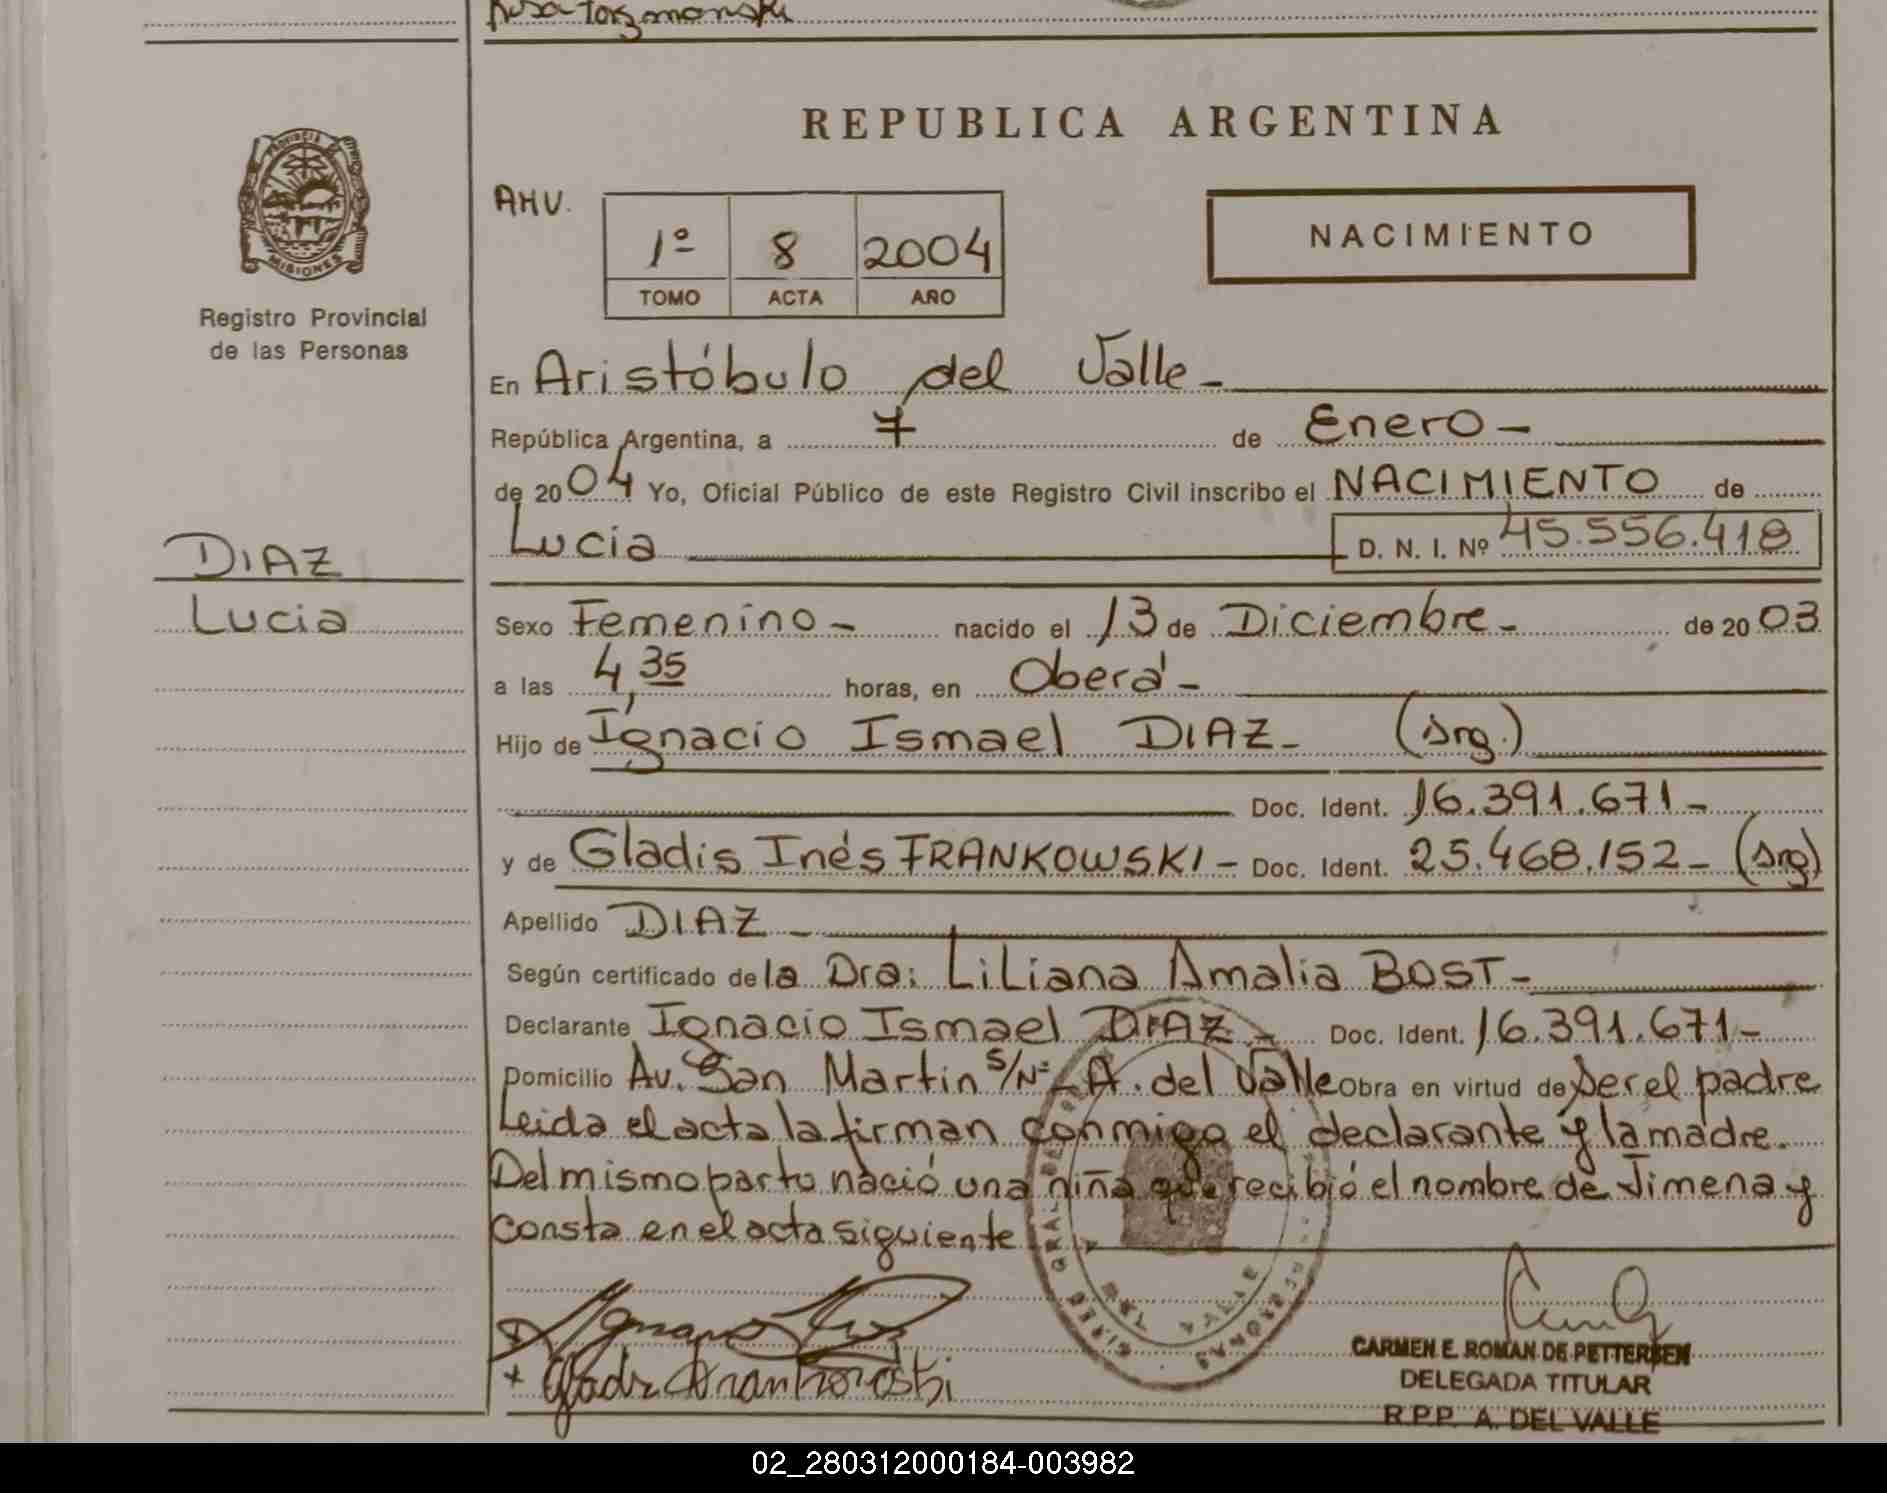 Rosa Torzmonski
REPUBLICA ARGENTINA
PROVINCIA
MISIONES
Registro Provincial
de las Personas
AHV.
1º 8 2004
TOMO ACTA AÑO
NACIMIENTO
En Aristóbulo del Valle -
República Argentina, a 7 de Enero -
de 2004 Yo, Oficial Público de este Registro Civil inscribo el NACIMIENTO de
Lucia D. N. I. Nº 45.556.418
DIAZ
Lucia
Sexo Femenino - nacido el 13 de Diciembre - de 2003
a las 4,35 horas, en Oberá -
Hijo de Ignacio Ismael DIAZ - (Arg.)
Doc. Ident. 16.391.671 -
y de Gladis Inés FRANKOWSKI - Doc. Ident. 25.468.152 - (Arg)
Apellido DIAZ -
Según certificado de la Dra: Liliana Amalia BOST -
Declarante Ignacio Ismael DIAZ - Doc. Ident. 16.391.671 -
Domicilio Av. San Martin S/Nº - A. del Valle Obra en virtud de ser el padre
Leida el acta la firman conmigo el declarante y la madre.
Del mismo parto nació una niña que recibió el nombre de Jimena y
consta en el acta siguiente
DEL VALLE
CARMEN E. ROMAN DE PETTERSEN
DELEGADA TITULAR
R.P.P. A. DEL VALLE
02_280312000184-003982